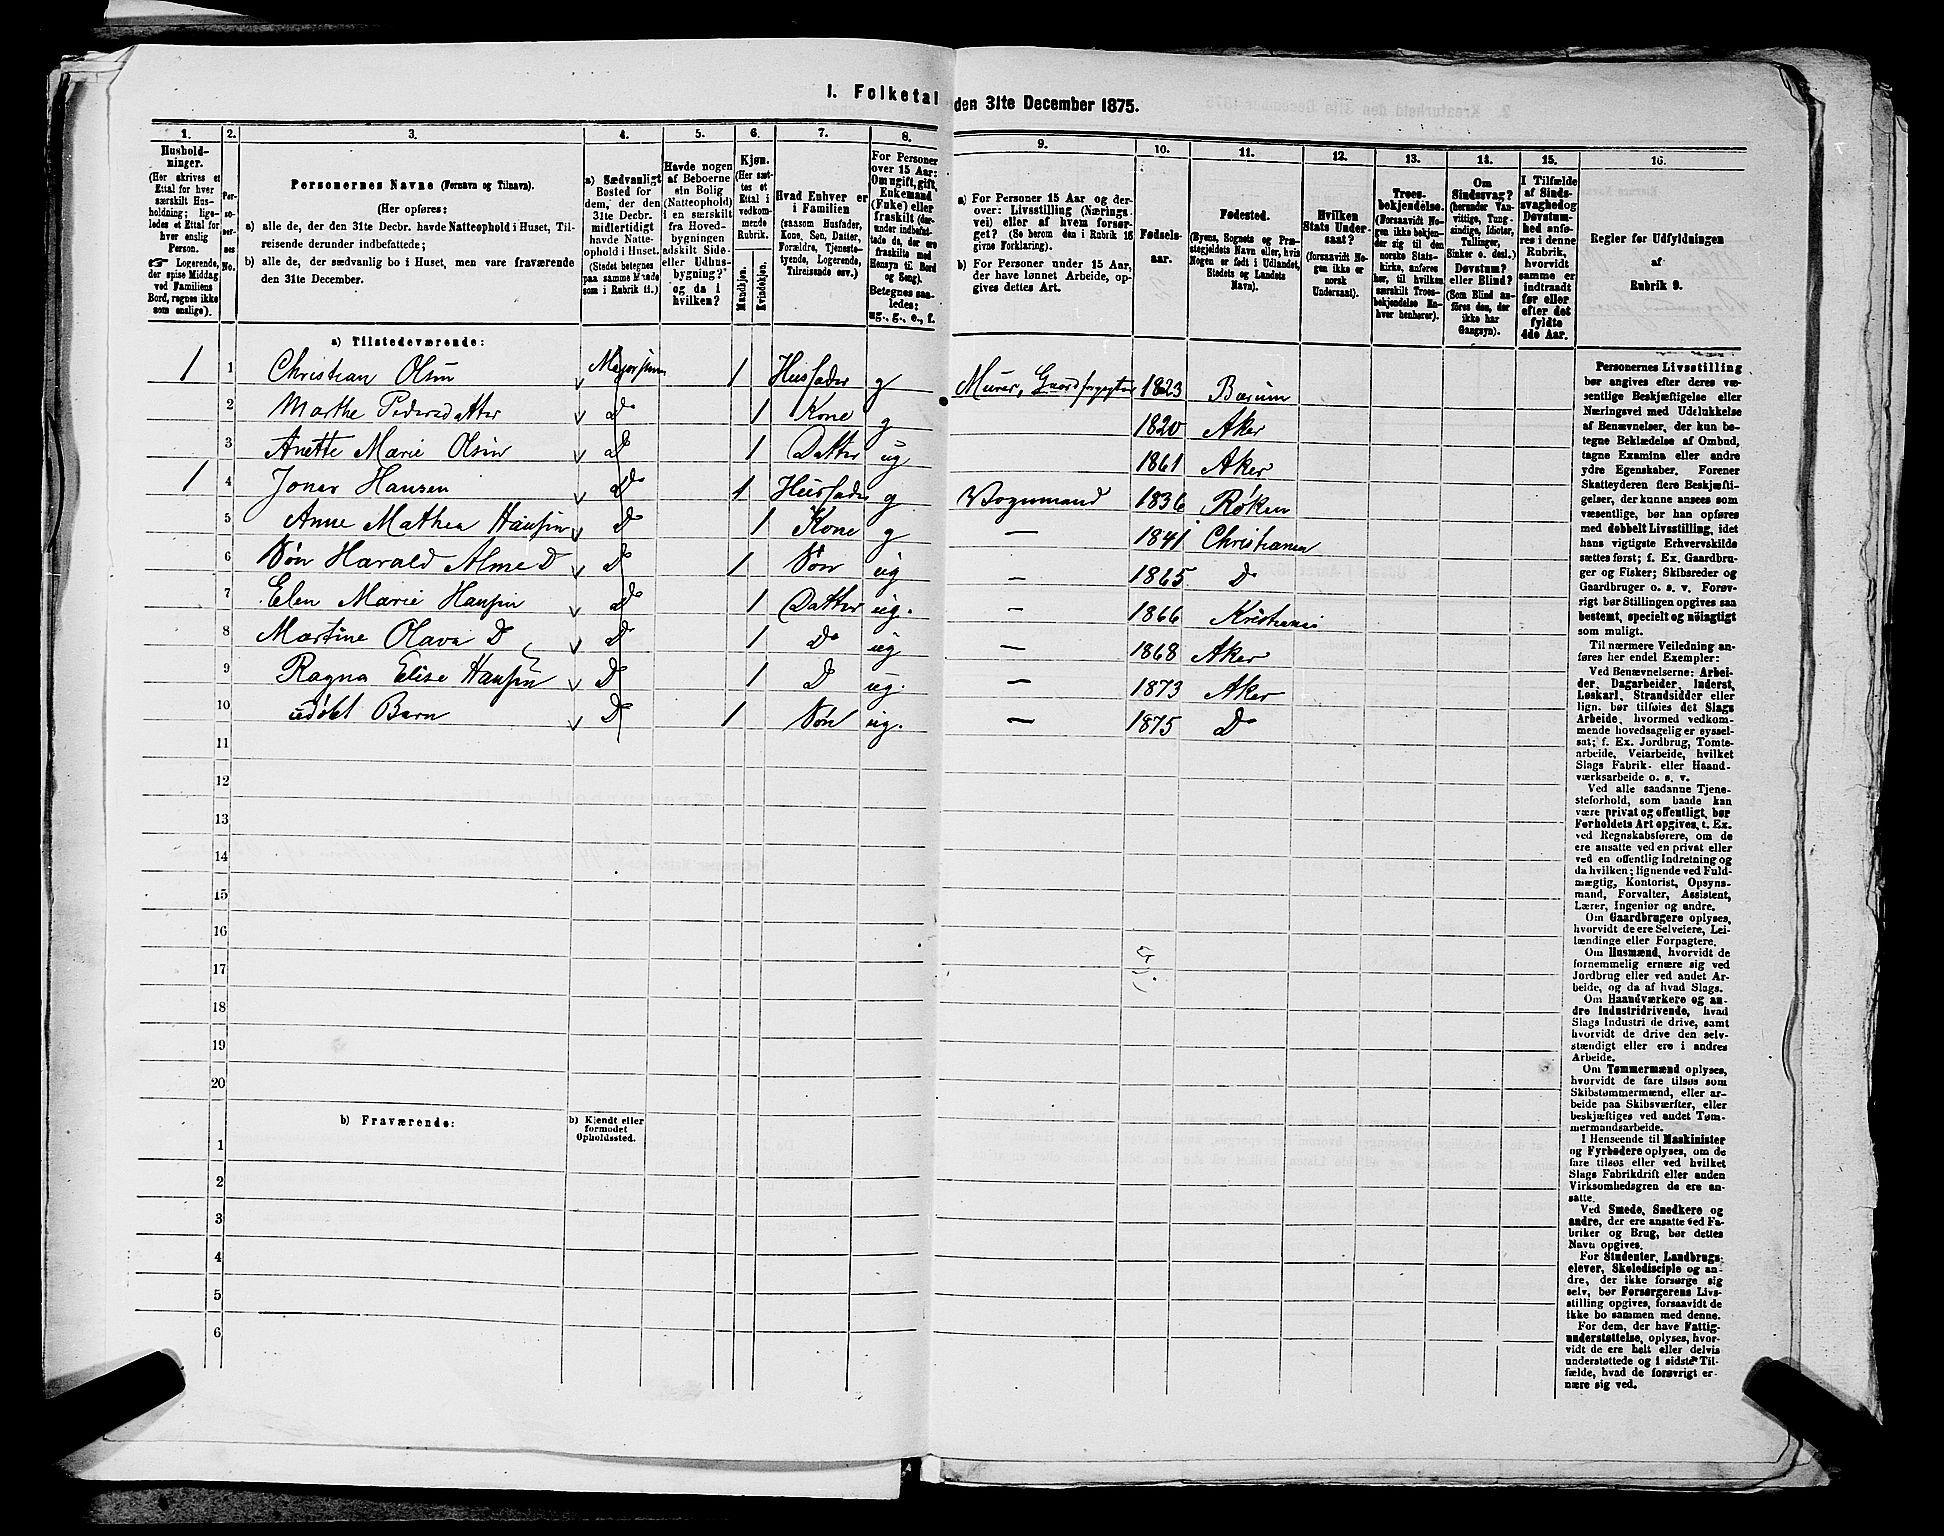 1. Folketal den 31te December 1875.
1. 2. 3. 4. 5. 6. 7. 8. 9. 10. 11. 12. 13. 14. 15. 16.
Husholdninger.
(Her skrives et
Ettal for hver
særskilt Husholdning;
ligeledes et Ettal for
hver enslig
Person.
☞ Logerende,
der spise Middag
ved Familiens
Bord, regnes ikke
som enslige).
Personernes No.
Personernes Navne (Fornavn og Tilnavn).
(Her opføres:
a) alle de, der den 31te Decbr. havde Natteophold i Huset, Tilreisende derunder indbefattede;
b) alle de, der sædvanlig bo i Huset, men vare fraværende
den 31te December.
a) Sædvanligt
Bosted for
dem, der den
31te Decbr.
midlertidigt
havde Natteophold
i Huset.
(Stedet betegnes
paa samme Maade
som i Rubrik 11.)
Havde nogen
af Beboerne
sin Bolig
(Natteophold)
i en særskilt
fra Hovedbygningen
adskilt Sideeller
Udhusbygning?
og da i
hvilken?
Kjøn.
(Her sættes
et
Ettal i
vedkommende
Rubrik.
Mandkjøn.
Kvindekjøn.
Hvad Enhver er
i Familien
(saasom Husfader,
Kone, Søn, Datter,
Forældre, Tjenestetyende,
Logerende,
Tilreisende osv.)
For Personer
over 15 Aar:
Om ugift, gift,
Enkemand
(Enke) eller
fraskilt (derunder
indbefattede
de, der ere
fraskilte med
Hensyn til Bord
og Seng).
Betegnes saaledes:
ug., g., e., f.
a) For Personer 15 Aar og derover:
Livsstilling (Næringsvei)
eller af hvem forsørget?
(Se herom den i Rubrik 16
givne Forklaring).
b) For Personer under 15 Aar,
der have lønnet Arbeide, opgives
dettes Art.
Fødselsaar.
Fødested.
(Byens, Sognets og Præstegjeldets
Navn eller, hvis
Nogen er født i Udlandet,
Stedets og Landets
Navn).
Hvilken
Stats Undersaat?
(forsaavidt Nogen
ikke er
norsk
Undersaat).
Troesbekjendelse.
(Forsaavidt Nogen
ikke bekjender
sig til den
norske Statskirke,
anføres
her, til hvilken
særskilt Troesbekjendelse
Enhver
henhører).
Om
Sindssvag?
(herunder Vanvittige,
Tungsindige,
Idioter,
Tullinger,
Sinker o. desl.)
Døvstum?
eller Blind?
(Som Blind anføres
den, der
ikke har
Gangsyn).
I Tilfælde
af Sindssvaghed
og
Døvstumhed
anføres
i denne
Rubrik,
hvorvidt
samme er
indtraadt
før eller
efter det
fyldte
4de Aar.
Regler for Udfyldningen
af
Rubrik 9.
a) Tilstedeværende:
1 1 Christian Olsen 1 Husfader g Murer, Gaardforpagter 1823 Bærum
2 Marthe Pedersdatter Do 1 Kone g 1820 Aker
3 Anette Marie Olsen D 1 Datter ug 1861 Aker
1 4 Jonas Hansen Do 1 Husfader g Vognmand 1836 Røken
5 Anne Mathea Hansen D 1 Kone g — 1841 Christiania
6 Søn Harald Alme D D 1 Søn ug — 1865 D
7 Elen Marie Hansen D 1 Datter ug. — 1866 Kristiania
8 Martine Olava D D 1 Do ug — 1868 Aker
9 Ragna Elise Hansen D 1 D ug. — 1873 Aker
10 udøbt Barn D 1 Søn ug. — 1875 Do
11
12
13
14
15
16
17
18
19
20
b) Fraværende:
b) Kjendt eller
formodet
Opholdssted.
1
2
3
4
5
6
Personernes Livsstilling
bør angives efter deres væsentlige
Beskjæftigelse eller
Næringsvei med Udelukkelse
af Benævnelser, der kun betegne
Beklædelse af Ombud,
tagne Examina eller andre
ydre Egenskaber. Forener
Skatteyderen flere Beskjæftigelser,
der kunne ansees som
væsentlige, bør han opføres
med dobbelt Livsstilling, idet
hans vigtigste Erhvervskilde
sættes først; f. Ex. Gaardbruger
og Fisker; Skibsreder og
Gaardbruger o. s. v. Forøvrigt
bør Stillingen opgives saa
bestemt, specielt og nöiagtigt
som muligt.
Til nærmere Veiledning anføres
her endel Exempler:
Ved Benævnelserne: Arbeider,
Dagarbeider, Inderst,
Løskarl, Strandsidder eller
lign. bør tilføies det Slags
Arbeide, hvormed vedkommende
hovedsagelig er sysselsat;
f. Ex. Jordbrug, Tomtearbeide,
Veiarbeide, hvilket
Slags Fabrik- eller Haandværksarbeide
o. s. v.
Ved alle saadanne Tjenesteforhold,
som baade kan
være privat og offentligt, bør
Forholdets Art opgives, t. Ex.
ved Regnskabsførere, om de
ere ansatte ved en privat eller
ved en offentlig Indretning og
da hvilken; lignende ved Fuldmægtig,
Kontorist, Opsynsmand,
Forvalter, Assistent,
Lærer, Ingeniør og andre.
Om Gaardbrugere oplyses,
hvorvidt de ere Selveiere, Leilændinge
eller Forpagtere.
Om Husmænd, hvorvidt de
fornemmelig ernære sig ved
Jordbrug eller ved andet Arbeide,
og da af hvad Slags.
Om Haandværkere og andre
Industridrivende, hvad
Slags Industri de drive, samt
hvorvidt de drive den selvstændigt
eller ere i andres
Arbeide.
Om Tømmermænd oplyses,
hvorvidt de fare tilsøs som
Skibstømmermænd, eller arbeide
paa Skibsværfter, eller
beskjæftiges ved andet Tømmermandsarbeide.
I Henseende til Maskinister
og Fyrbødere oplyses, om de
fare tilsøs eller ved hvilket
Slags Fabrikdrift eller anden
Virksomhedsgren de ere ansatte.
Ved Smede, Snedkere og
andre, der ere ansatte ved Fabriker
og Brug, bør dettes
Navn opgives.
For Studenter, Landbrugselever,
Skoledisciple og andre,
der ikke forsørge sig
selv, bør Forsørgerens Livsstilling
opgives, forsaavidt de
ikke bo sammen med denne.
For dem, der have Fattigunderstøttelse,
oplyses, hvorvidt
de ere helt eller delvis
understøttede og i sidste Tilfælde,
hvad de forøvrigt ernære
sig ved.